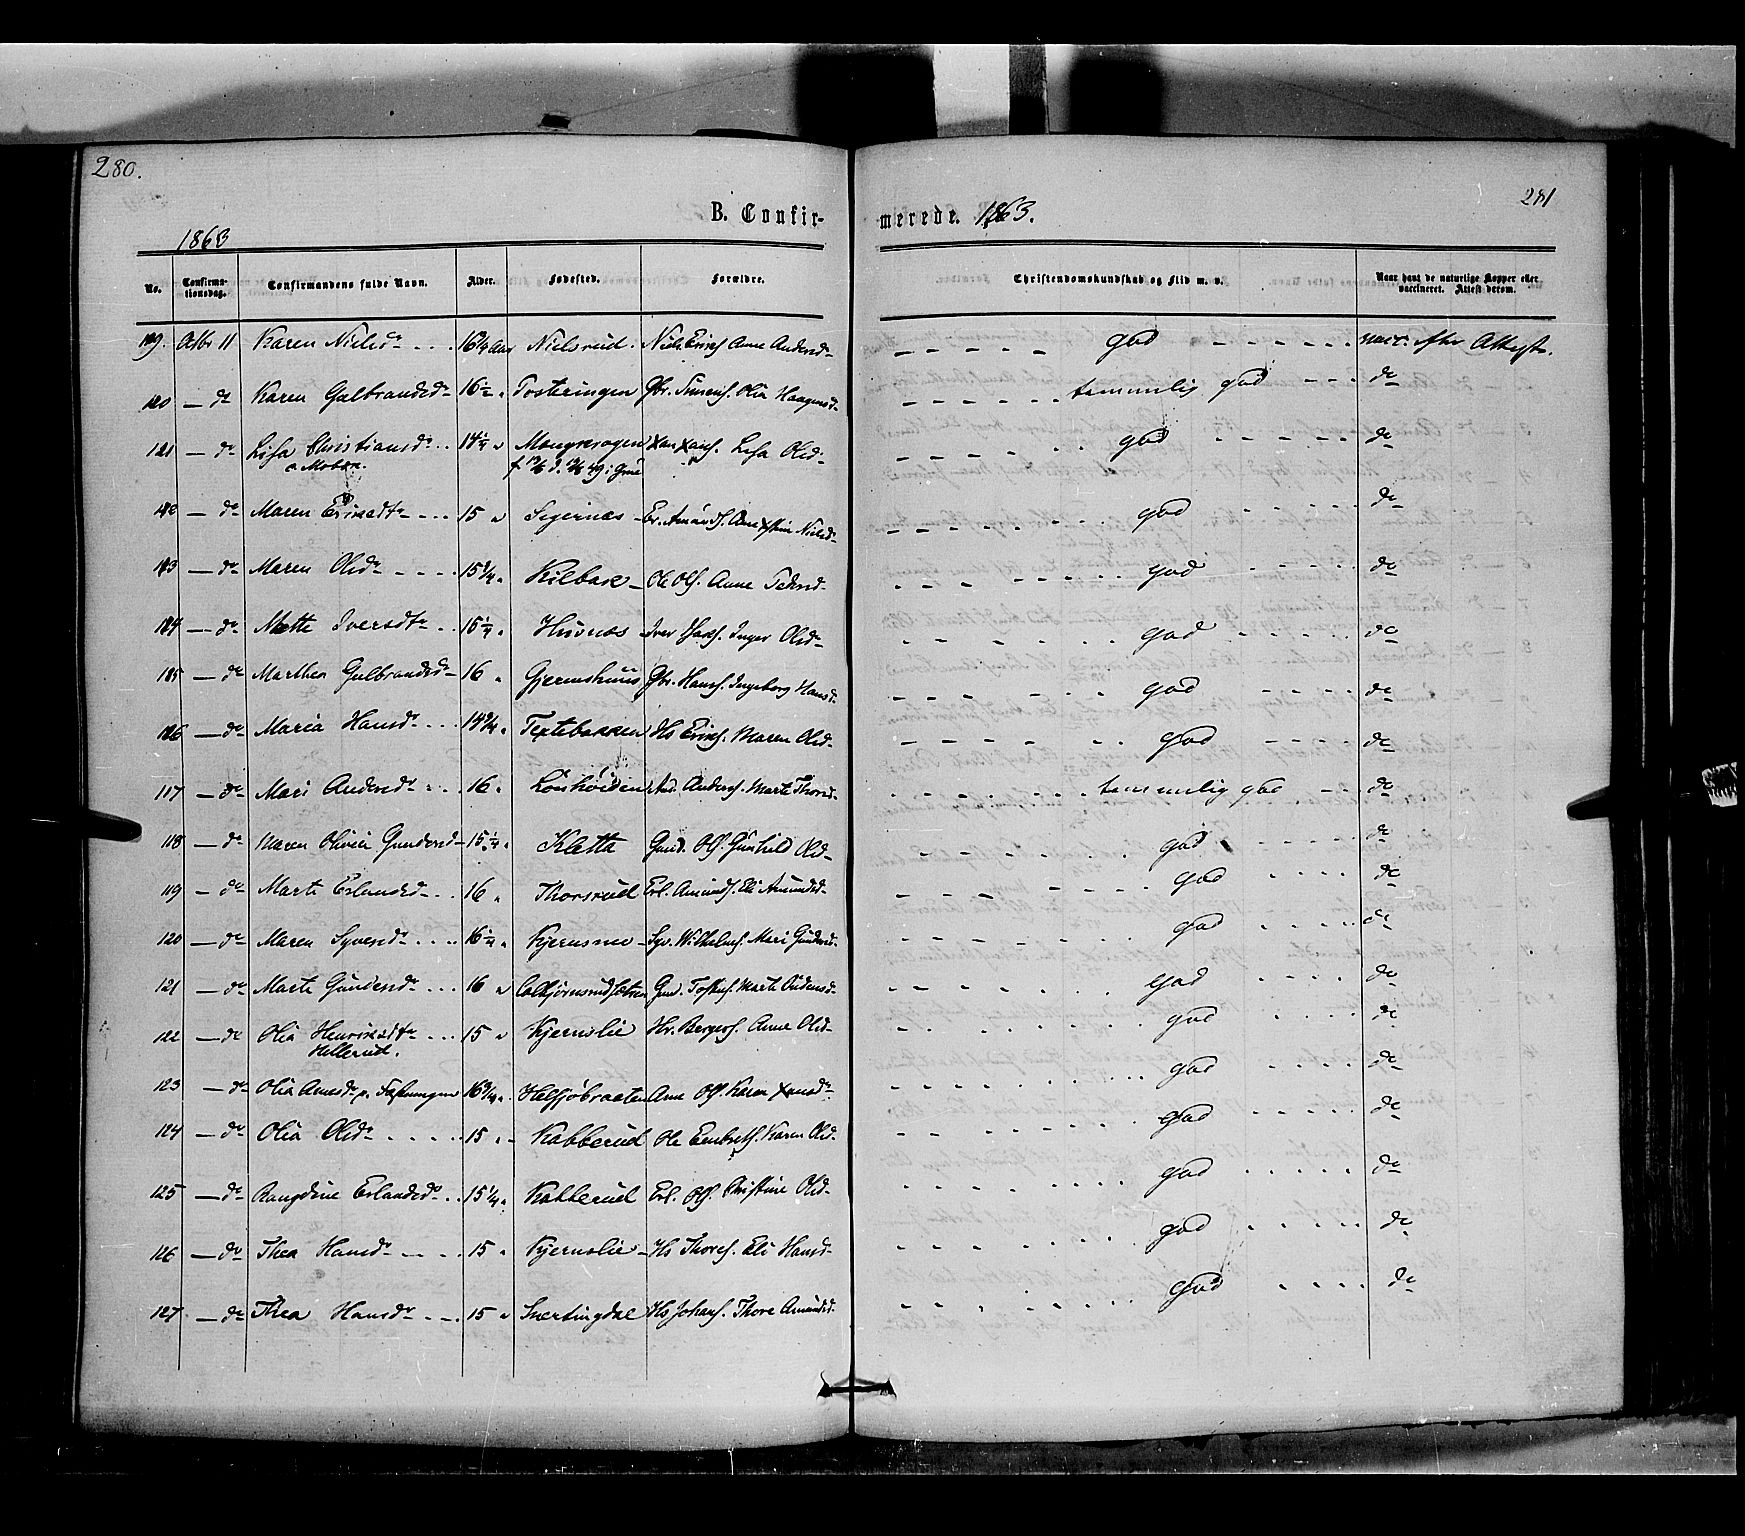 280.
281
B. Confir-
merede. 1863.
1863
No. Confirmationsdag. Confirmandens fulde Navn. Alder. Fødested. Forældre. Christendomskundskab og Flid m. v. Naar havt de naturlige Kopper eller vaccineret. Attest derom.
Octbr 11 Karen Nielsdr 16 3/4 Aar Nielsrud. Niels Erichs. Anne Andersd. god vacc. efter Attest.
120 do Karen Gulbrandsdr 16 1/2 " Fosteringen Gbr. Simens. Olia Haagensd. temmelig god do
121 do Lisa Christiansdr 14 1/4 " Lisa Olsd. god do
do Maren Ericksdtr 15 " Segernæs Er. Amunds. Anne Nielsd. god do
do Maren Olsdr 15 1/4 " Kilbak Ole Ols. Anne Pedersd. god do
do Mette Iversdtr 15 1/4 " Husnæs Iver Inger Olsd. god do
do Marthea Gulbrandsdr 16 " Gjermshuus Gbr. Hans. Ingeborg Hansd. god do
do Maria Hansdr 14 3/4 " Hs Erichs. Maren Olsd. god do
117 do Mari Andersdr 16 " Lönhöiden And. Anders. Marte Thorsd. temmelig god do
118 do Maren Olivia Gundersd. 15 1/4 " Kletta Gund. Ols. Gunhild Olsd. god do
119 do Marte Erlandsd. 16 " Thorsrud Erl. Amunds. Eli Amundsd. god do
120 do Maren Syversdr 16 1/4 " Kjernsmo Syv. Wilhelms. Mari Gundersd. god do
121 do Marte Gundersdr 16 " Gun. Marte Gudmsd. god do
122 do Olia Henriksdtr 15 " Kjernslie Hr. Bergers. Anne Olsd. god do
Hellerud.
123 do Olia Arnesdr p. Fæstningen 16 3/4 " Helsjöbraaten Arne Ols. Karen god do
124 do Olia Olsdr 15 " Kabberud Ole Embrets. Karen Olsd. god do
125 do Rangdine Erlandsdr 15 1/4 " Kabberud Erl. Ols. Christine Olsd. god do
126 do Thea Hansdr 15 " Kjernslie Hs Thores. Eli Hansd. god do
127 do Thea Hansdr 15 " Snertingdal Hs Johans. Thore Amundsd. god do